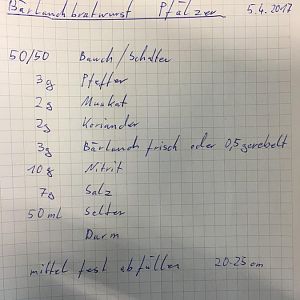 Bärlauchbratwurst Pfälzer 5.4.2017
50/50 Bauch/Schulter
3g Pfeffer
2g Muskat
2g Koriander
3g Bärlauch frisch oder 0,5 gerebelt
10g Nitrit
7g Salz
50ml Selter
Darm
mittel fest abfüllen 20-25 cm